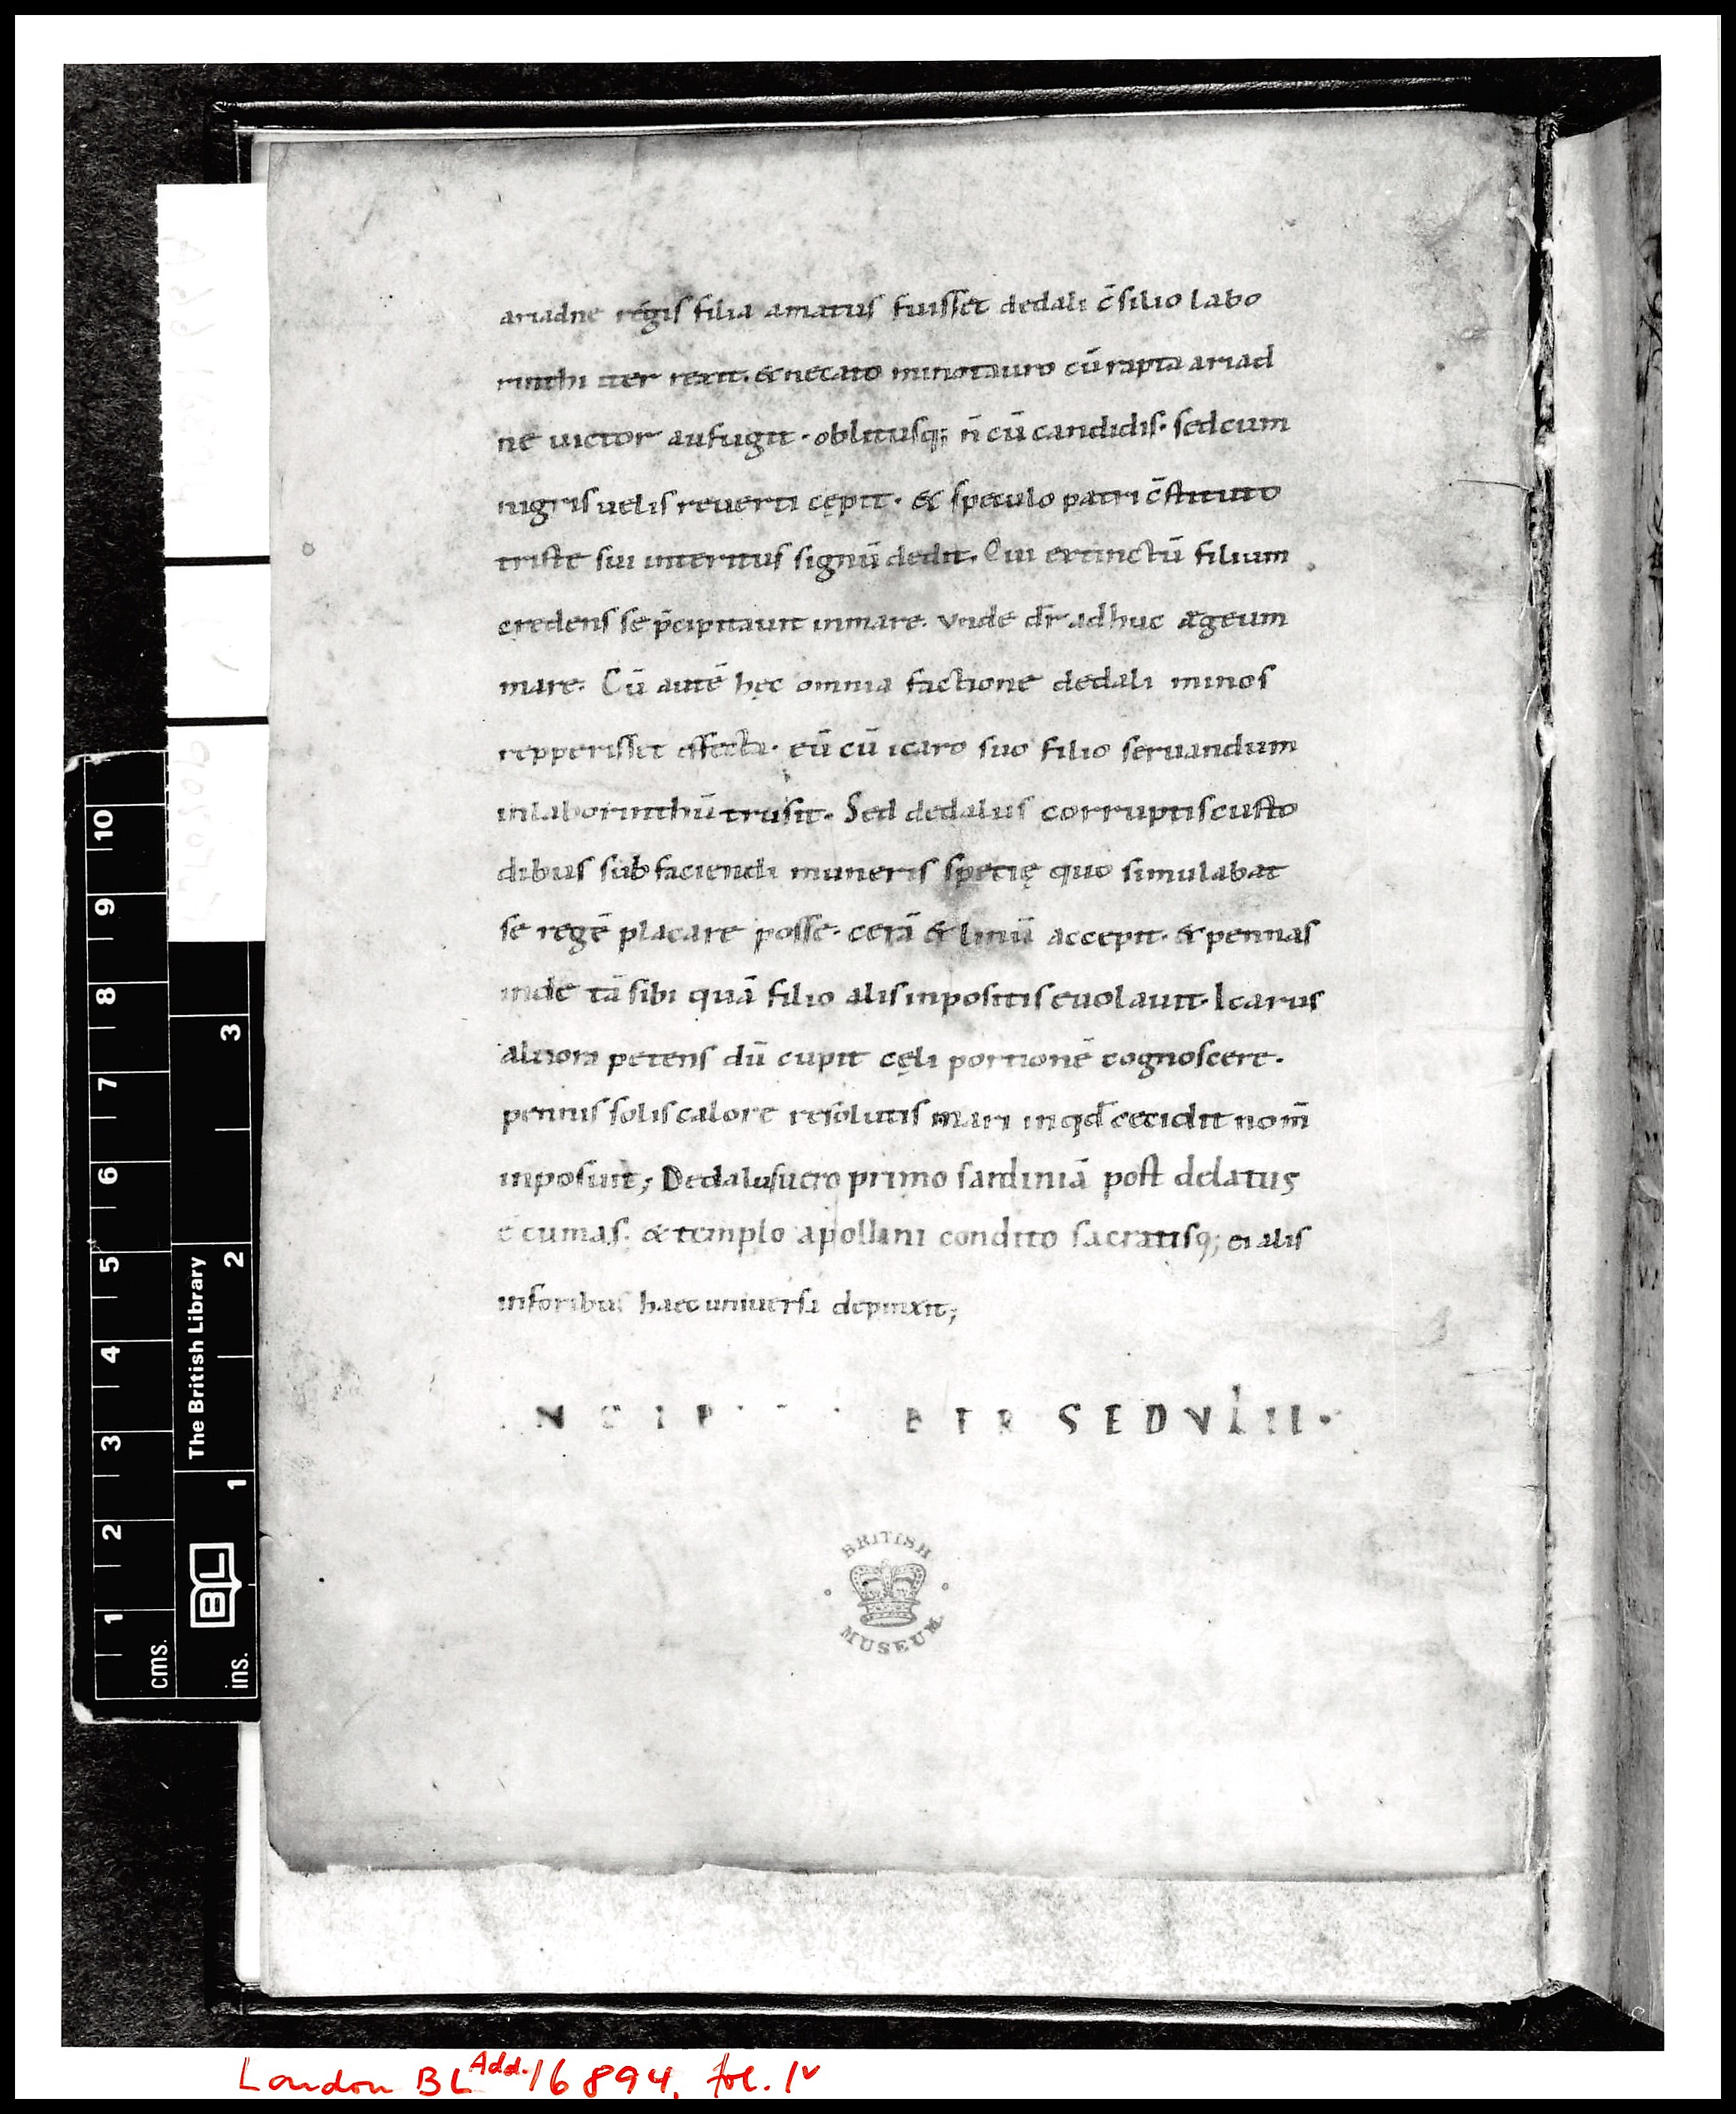 ariadne regis filia amatus fuisset dedali c̄silio labo
rinthi iter rexit. & necato minotauro cū rapta ariad
ne uictor aufugit · oblitusq; n̄ cū candidis · sed cum
nigris uelis reuerti cępit · & speculo patri c̄stituto
triste sui interitus signū dedit. Qui extinctū filium
credens se p̄cipitauit inmare. vnde dr̄ adhuc ægeum
mare. Cū autē hęc omnia factione dedali minos
repperisset effecta · eū cū icaro suo filio seruandum
inlaborinthū trusit. Sed dedalus corruptis custo
dibus sub faciendi muneris specię quo simulabat
se regē placare posse · cerā & linū accepit · & pennas
inde tā sibi quā filio alis inpositis euolauit · Icarus
altiora petens dū cupit cęli portionē cognoscere ·
pennis solis calore resolutis mari inqd̄ cecidit nom̄
inposuit; Dedalus uero primo sardiniā post delatus
ē cumas. & templo apollini condito sacratisq; ei alis
inforibus haec uniuersa depinxit;
NCIP BER SEDVLII ·
BRITISH
MUSEUM
10
9
8
7
6
5
4
3
2
1
cms.
3
2
1
ins.
The British Library
BL
London BL Add. 16894, fol. 1v